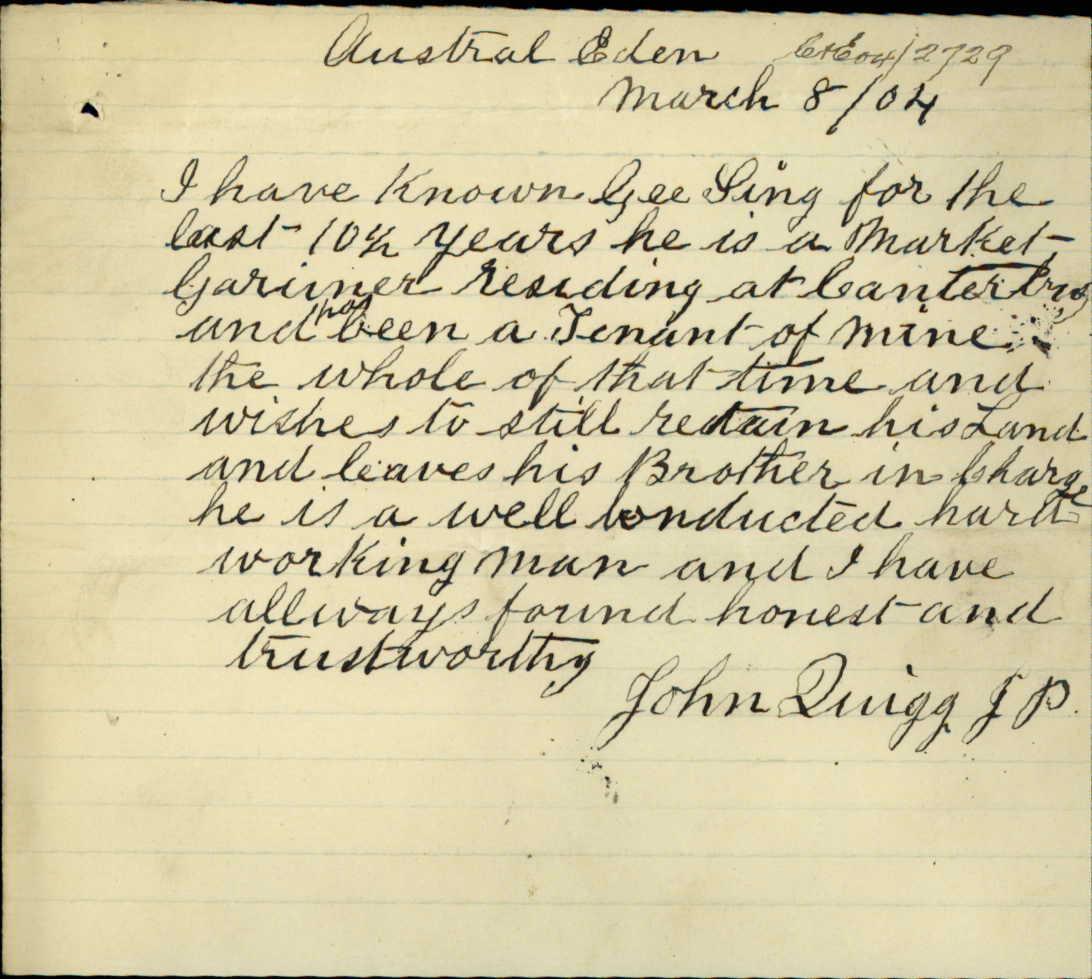 Austral Eden C+E04/2729
March 8/04
I have Known Gee Sing for the
last 10½ years he is a Market
Gardner residing at Canterbry
and has been a Tenant of mine
the whole of that time and
wishes to still retain his Land
and leaves his Brother in Charge
he is a well Conducted hard
working Man and I have
allways found honest and
trustworthy
John Quigg J P.